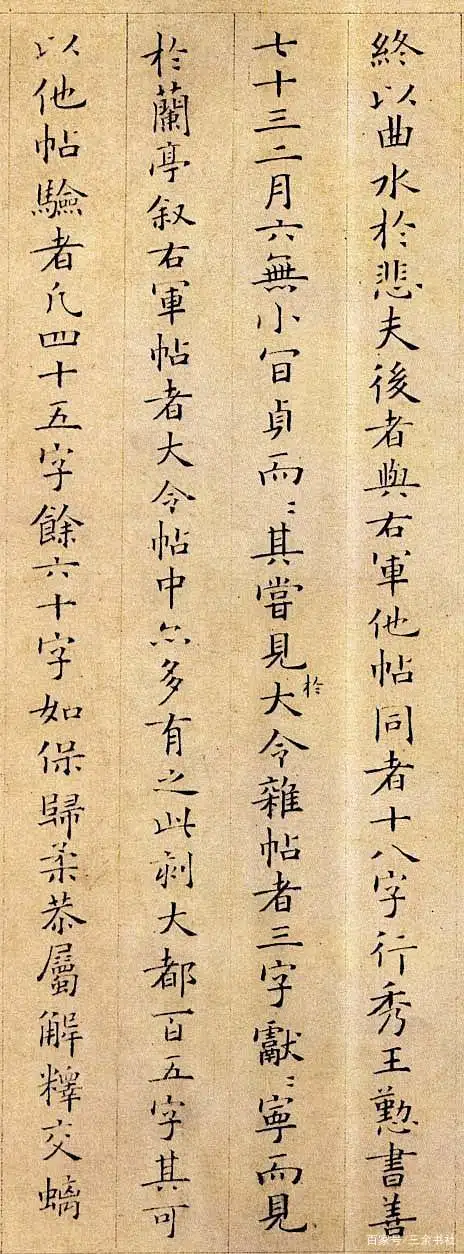 終以曲水於悲夫後者與右軍他帖同者十八字行秀王懃書善
七十三二月六無小貞而〻其嘗見於大令雜帖者三字獻〻寧而見
於蘭亭叙右軍帖者大令帖中亦多有之此刻大都百五字其可
以他帖驗者凡四十五字餘六十字如保歸柔恭屬解釋交螭
百家号/三余书社